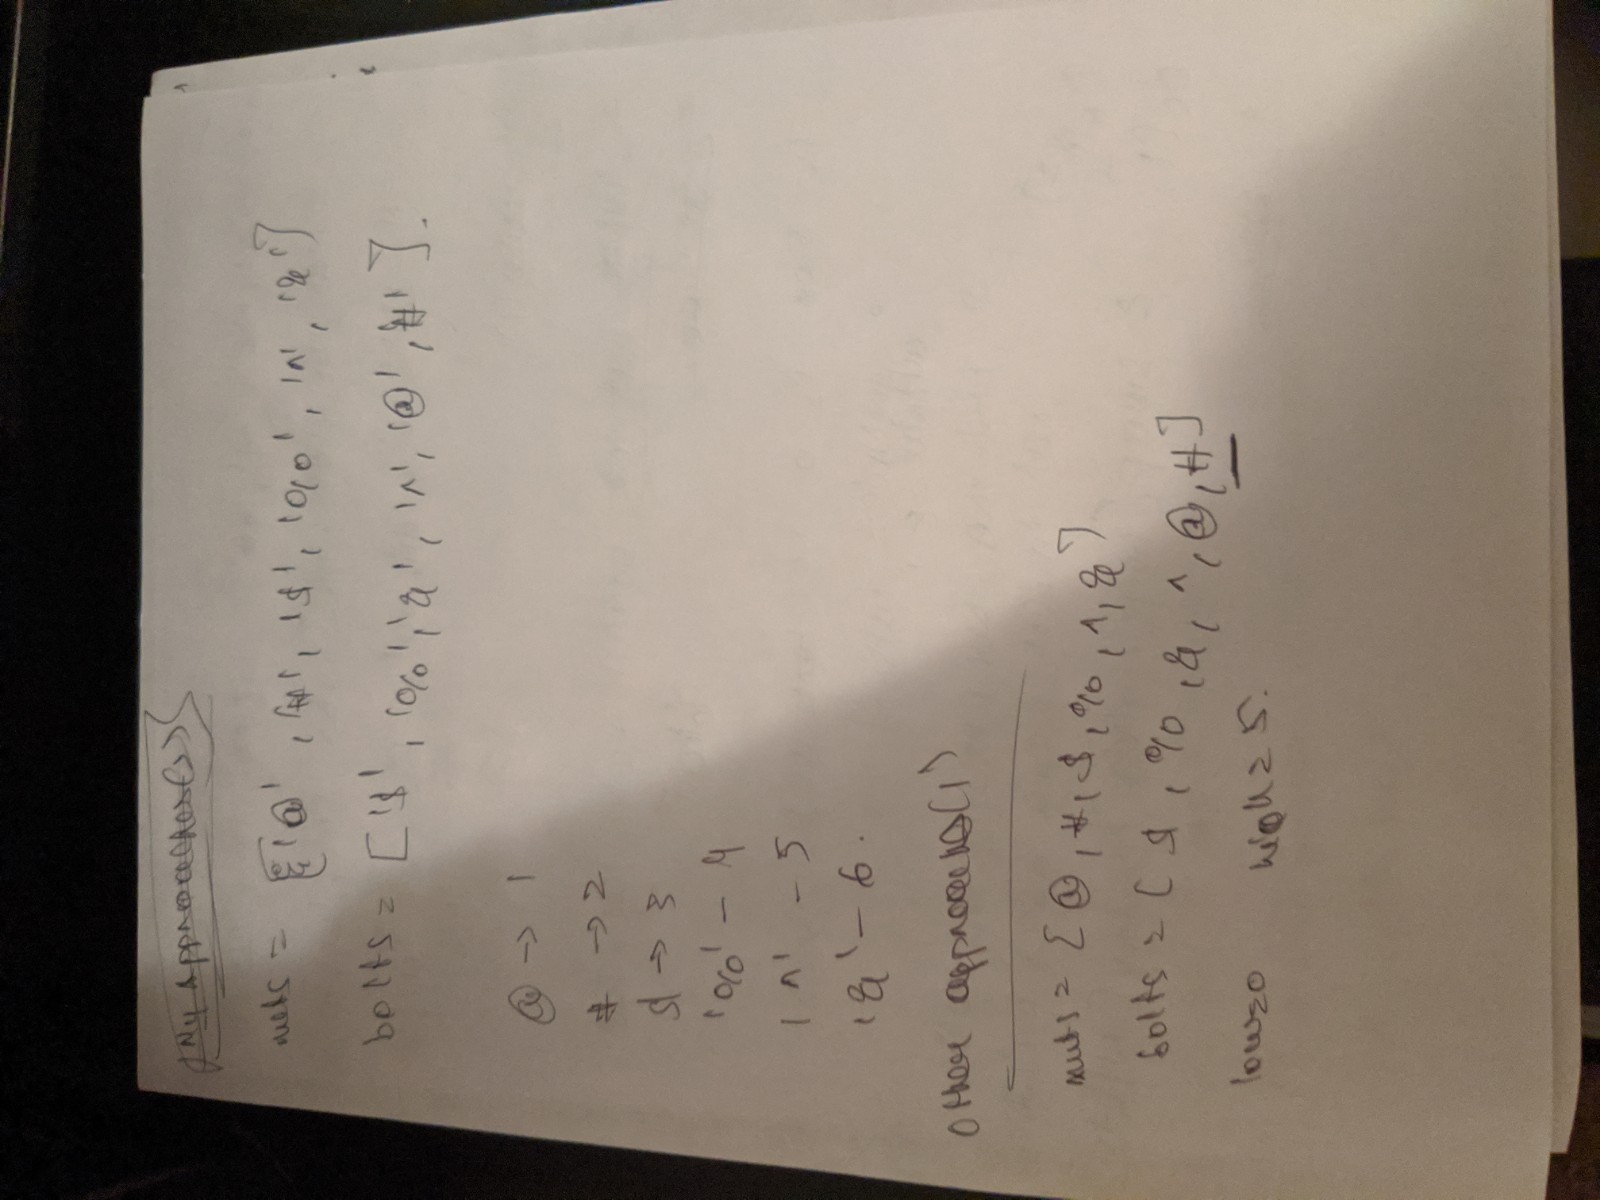 (My Approaches)
nuts = ['@', '#', '$', '%', '^', '&']
bolts = ['$', '%', '&', '^', '@', '#'].
@ → 1
# → 2
$ → 3
'%' - 4
'^' - 5
'&' - 6.
Other approaches(1)
nuts = [@, #, $, %, ^, &]
bolts = [$, %, &, ^, @, #]
low=0 high=5.